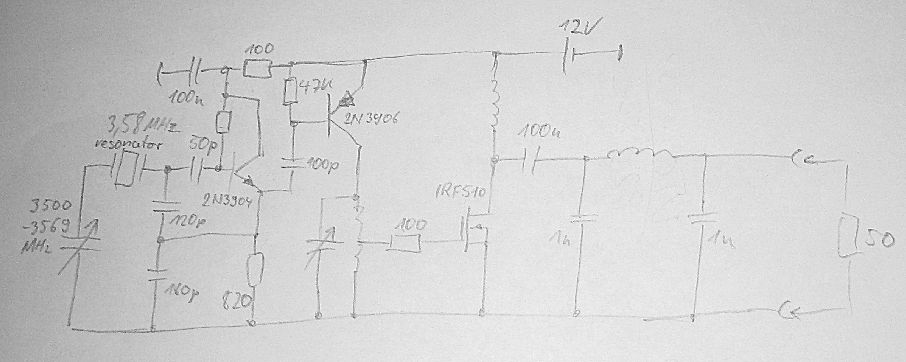 12V
100
100n
47K
2N3906
3,58MHz
resonator
50p
100p
100n
2N3904
IRF510
3500
-3569
MHz
120p
100
1n
1n
50
820